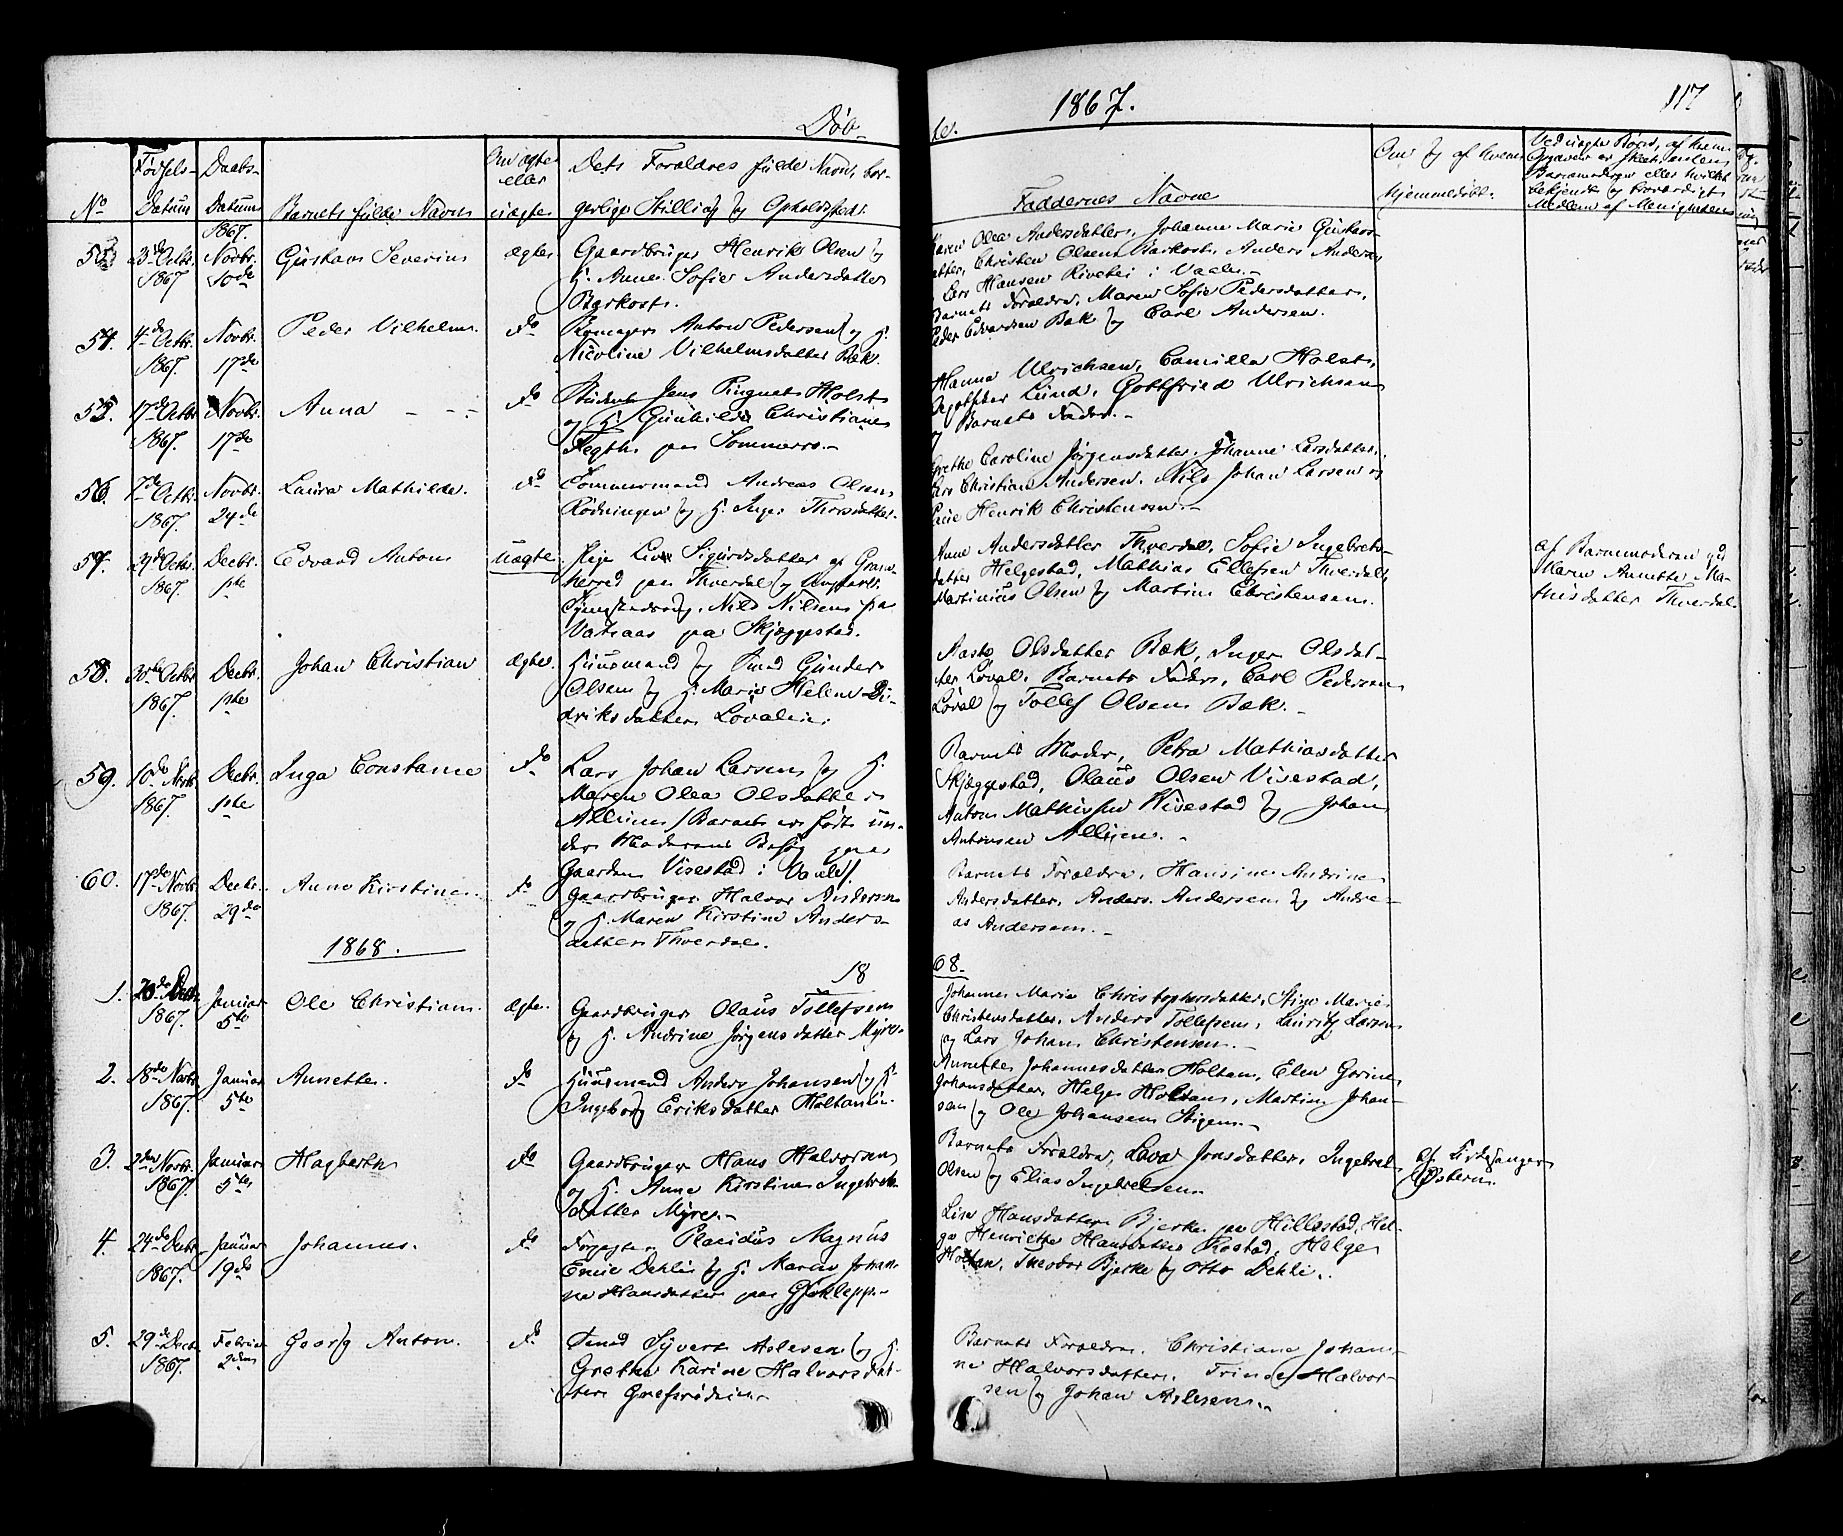 Døb-
te.
1867.
117
No
Fødsels-
Datum
Daabs-
Datum
1867.
Barnets fulde Navn
Om ægte
eller
uægte
Dets Forældres fulde Navn, bor-
gerlige Stilling og Opholdssted.
Faddernes Navne
hjemmedøbt.
53.
23de Octbr.
1867
Novbr.
10de
Gustav Severin
ægte
Gaardbruger Henrik Olsen og
H. Anne Sofie Andersdatter
Barkost.
Maren Olea Andersdatter, Johanne Marie Gustavs-
datter, Christen Olsen Barkost, Anders Andersen
Lars Hansen i Vaale.-
54.
4de Octbr.
1867.
Novbr.
17de
Peder Vilhelm.
do
Anton Pedersen og H.
Nicoline Vilhelmsdatter Bæk.
Barnets Forældre, Maren Sofie Pedersdatter,
Peder Edvardsen Bæk og Carl Andersen.
55.
17de Octbr.
1867.
Novbr.
17de
Anna
do
Student Jens Holst
og H. Gunhilde Christiane
paa Sommerro.-
Hanna Ulrichsen, Camilla Holst,
Lund, Gottfried Ulrichsen
og Barnets Fader.-
56.
7de Octbr.
1867.
Novbr.
24de
Laura Mathilde.
do
Andreas Olsen
Rødningen og H. Inger Thorsdatter.
Grethe Caroline Jørgensdatter, Johanne Larsdatter,
Lars Christian Andersen, Nils Johan Larsen og
Henrik Christensen.-
57.
29de Octbr.
1867.
Decbr.
1ste
Edvard Anton
uægte
Pige Live Sigurdsdatter af Grans-
herred paa Thverdal og Ungkarl
Nils Nilsen fra
Vatnaas paa Skjæggestad.
Anne Andersdatter Thverdal, Sofie Ingebrets-
datter Helgestad, Mathias Ellefsen Thverdal,
Martinius Olsen og Martin Christensen.
af Barnemoderen ved
Karen Annette Ma-
thisdatter Thverdal.
58.
30te Octbr.
1867.
Decbr.
1ste
Johan Christian
ægte.
Huusmand og Smed Gunder
Olsen og H. Marie Heline Di-
driksdatter Løvalei.
Aaste Olsdatter Bæk, Inger Olsdat-
ter Løval, Barnets Fader, Carl Pedersen
Løval og Tollef Olsen Bæk.-
59.
10de Novbr.
1867.
Decbr.
1ste
Inga Constance
do
Lars Johan Larsen og H.
Maren Olea Olsdatter
Allum /Barnet er født un-
der Moderens Besøg paa
Gaarden Vivestad i Vaale/.
Barnets Moder, Petra Mathiasdatter
Skjæggestad, Olaus Olsen Vivestad,
Anton Mathissen Vivestad og Johan
Antonsen Allum.-
60.
17de Novbr.
1867.
Decbr.
29de
Anne Kirstine.
do
Gaardbruger Halvor Andersen
og H. Maren Kirstine Anders-
datter Thverdal.
Barnets Forældre, Hansine Andrine
Andersdatter, Anders Andersen og Andre-
as Andersen.-
1868.
18
68.
1.
Decbr.
1867.
Januar
5te
Ole Christian.
ægte.
Gaardbruger Olaus Tollefsen
og H. Andrine Jørgensdatter Myre.
Johannes Marie Christophersdatter, Stine Marie
Christensdatter, Anders Tollefsen, Lauritz Larsen
og Lars Johan Christensen.-
2.
18de Novbr.
1867.
Januar
5te
Annette.
do
Huusmand Anders Johansen og H.
Ingeborg Eriksdatter Holtan.
Annette Johannesdatter Holtan, Elen Gurine
Johansdatter, Helge Holtan, Martin Johan-
sen og Ole Johansen Stigen.-
3.
2den Novbr.
1867.
Januar
5te
Hagbarth
do
Gaardbruger Hans Halvorsen
og H. Anne Kirstine Ingebrets-
datter Myre.-
Barnets Forældre, Lava Jonsdatter, Ingebret
Olsen og Elias Ingebretsen.
af Kirkesanger
Østern.
4.
24de Decbr.
1867.
Januar
19de
Johannes.
do
Forpagter Placidus Magnus
Emil Dehli og H. Maren Johan-
ne Hansdatter paa Gjeklepp.-
Lise Hansdatter Bjerke paa Hillestad, Hel-
ga Henriette Hansdatter Rostad, Helge
Holtan, Theodor Bjerke og Otto Dehli.
5.
29de Decbr.
1867.
Februar
2den
Georg Anton.
do
Smed Syvert Aslesen og H.
Grethe Karine Halvorsdat-
ter Grefsrødeie.-
Barnets Forældre, Christiane Johan-
ne Halvorsdatter, Trinde Halvor-
sen og Johan Aslesen.-